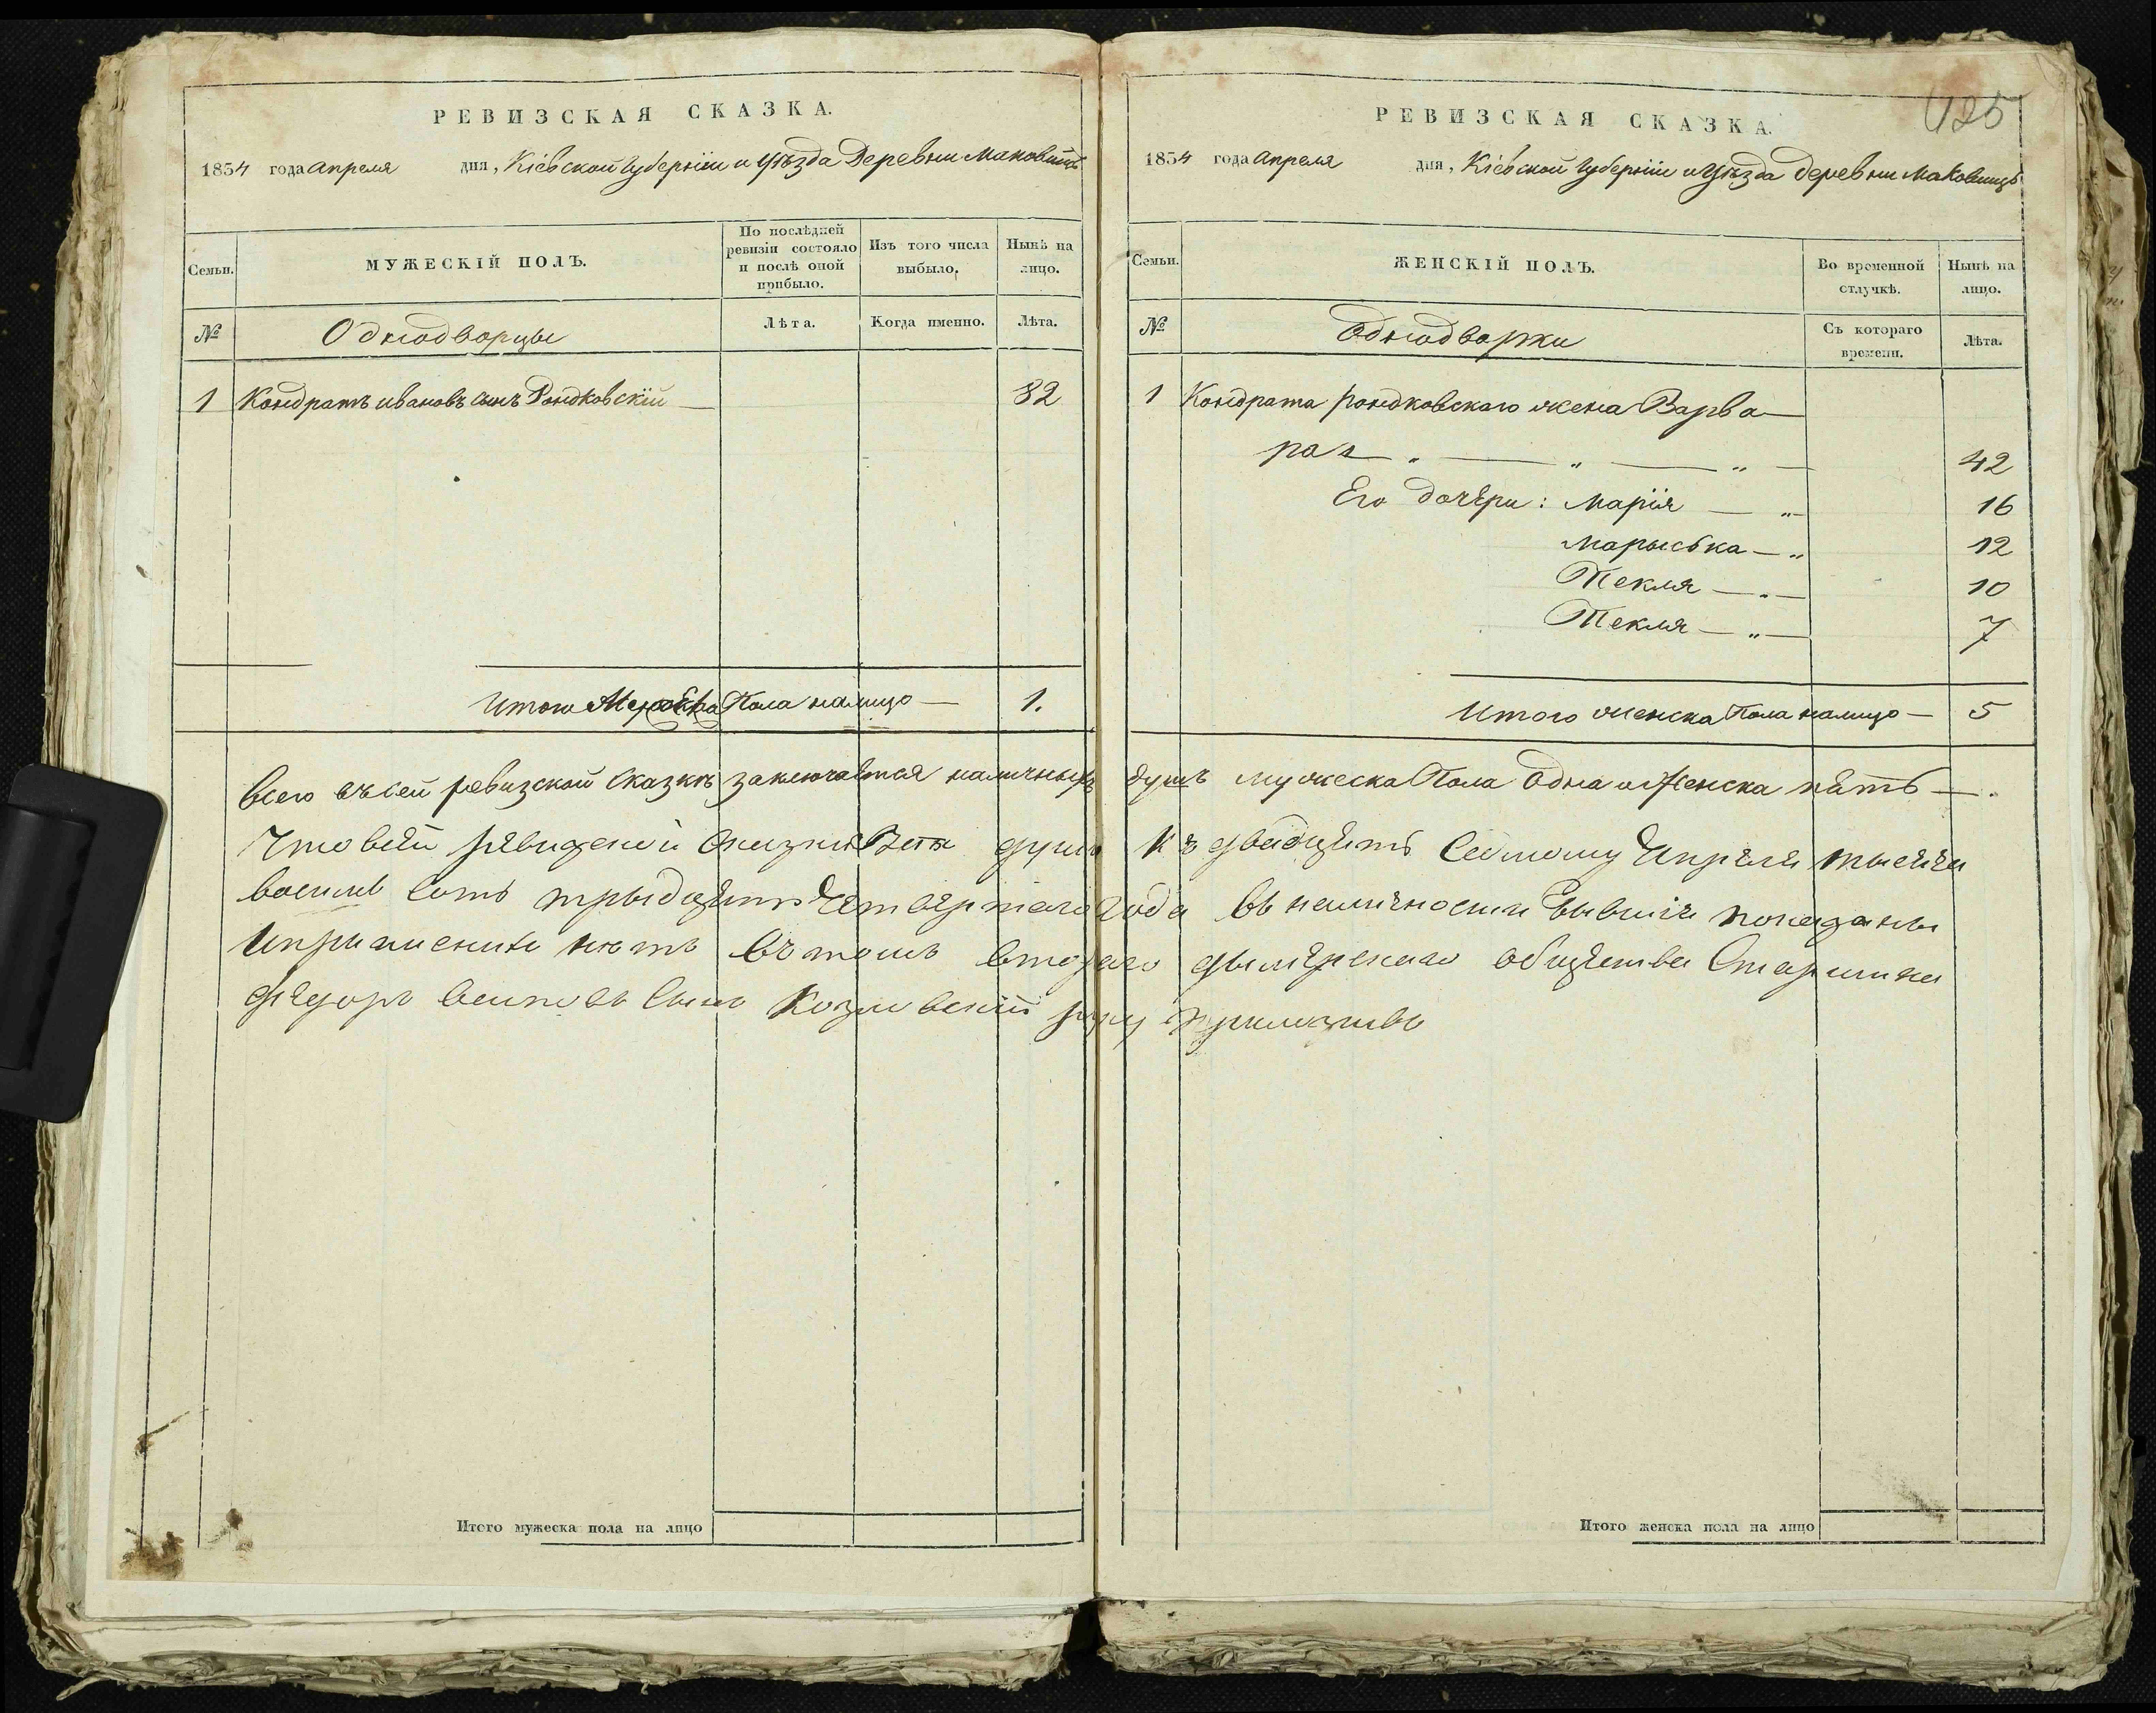 РЕВИЗСКАЯ СКАЗКА.
1834 года апреля дня, Кіевской губерніи и уѣзда Деревни Маковищъ
Семьи.
МУЖЕСКІЙ ПОЛЪ.
По послѣдней ревизіи состояло и послѣ оной прибыло.
Изъ того числа выбыло.
Нынѣ на лицо.
№
Однодворцы
Лѣта.
Когда именно.
Лѣта.
1 Кондратъ ивановъ сынъ Рондковскій 82
Итого Мужеска Пола налицо 1.
РЕВИЗСКАЯ СКАЗКА.
425
1834 года апреля дня, Кіевской губерніи и уѣзда деревни Маковищъ
Семьи.
ЖЕНСКІЙ ПОЛЪ.
Во временной отлучкѣ.
Нынѣ на лицо.
№
Однодворки
Съ котораго времени.
Лѣта.
1 Кондрата рондковскаго жена Варва
ра 42
Его дочери: Марія 16
Марыська 12
Текля 10
Текля 7
Итого женска Пола налицо 5
всего въ сей ревизской сказкѣ заключается наличныхъ душъ мужеска Пола одна и женска пять
Что въ сей ревизской сказки Все души къ двадцать Седмому Апреля тысяча
восим сотъ трыдцать Четвертаго Года въ наличности бывшіи показаны
и нѣтъ въ томъ втораго дымерскаго общества Старшина
сынъ Козловскій руку приложивъ
Итого мужеска пола на лицо
Итого женска пола на лицо